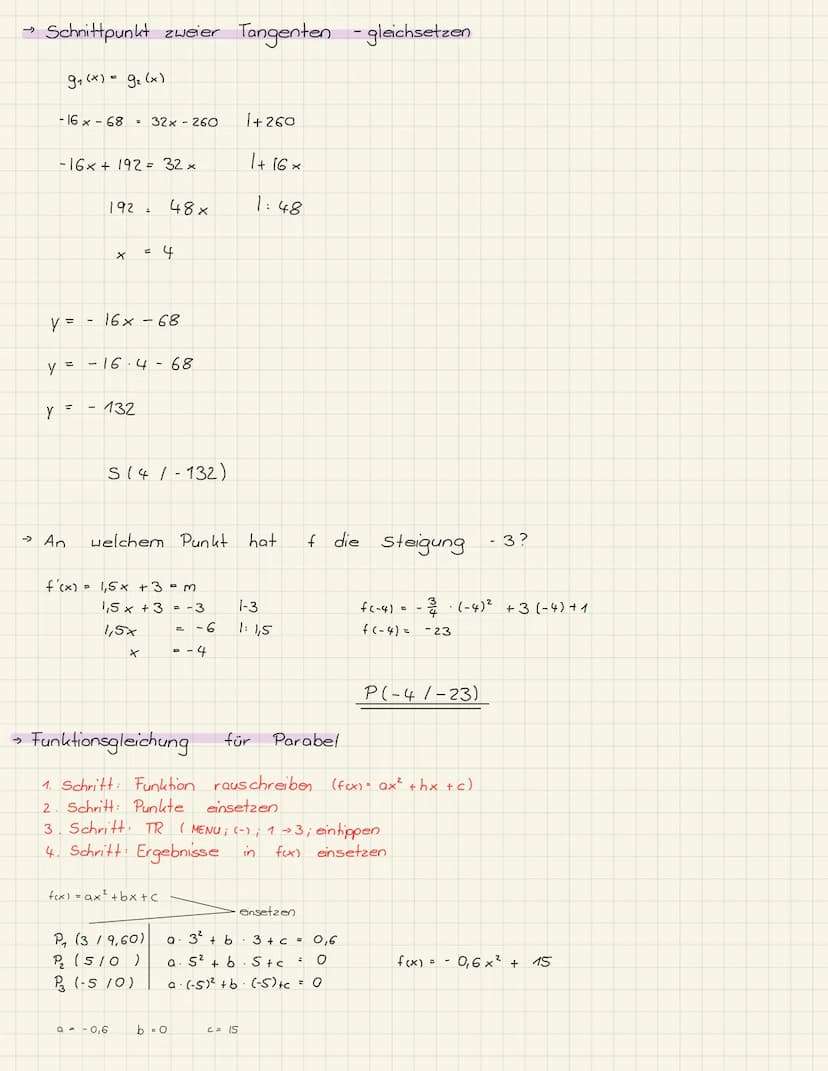 → Schnittpunkt zweier Tangenten - gleichsetzen
g₁(x) = g₂(x)
-16x - 68 = 32x - 260 |+260
-16x + 192 = 32x |+16x
192 = 48x |: 48
x = 4
y = - 16x - 68
y = - 16 · 4 - 68
y = - 132
S ( 4 / - 132 )
→ An welchem Punkt hat f die Steigung - 3?
f'(x) = 1,5x + 3 = m
1,5x + 3 = -3 |-3
1,5x = -6 |: 1,5
x = -4
f(-4) = - 3/4 · (-4)² + 3 (-4) + 1
f(-4) = -23
P ( -4 / -23 )
→ Funktionsgleichung für Parabel
1. Schritt: Funktion rauschreiben (f(x) = ax² + hx + c)
2. Schritt: Punkte einsetzen
3. Schritt: TR ( MENU; (-); 1 → 3; eintippen
4. Schritt: Ergebnisse in f(x) einsetzen
f(x) = ax² + bx + c
einsetzen
P₁ (3 / 9,60) | a · 3² + b · 3 + c = 0,6
P₂ ( 5 / 0 ) | a · 5² + b · 5 + c = 0
P₃ (-5 / 0) | a · (-5)² + b · (-5) + c = 0
f(x) = - 0,6x² + 15
a = -0,6 b = 0 c = 15